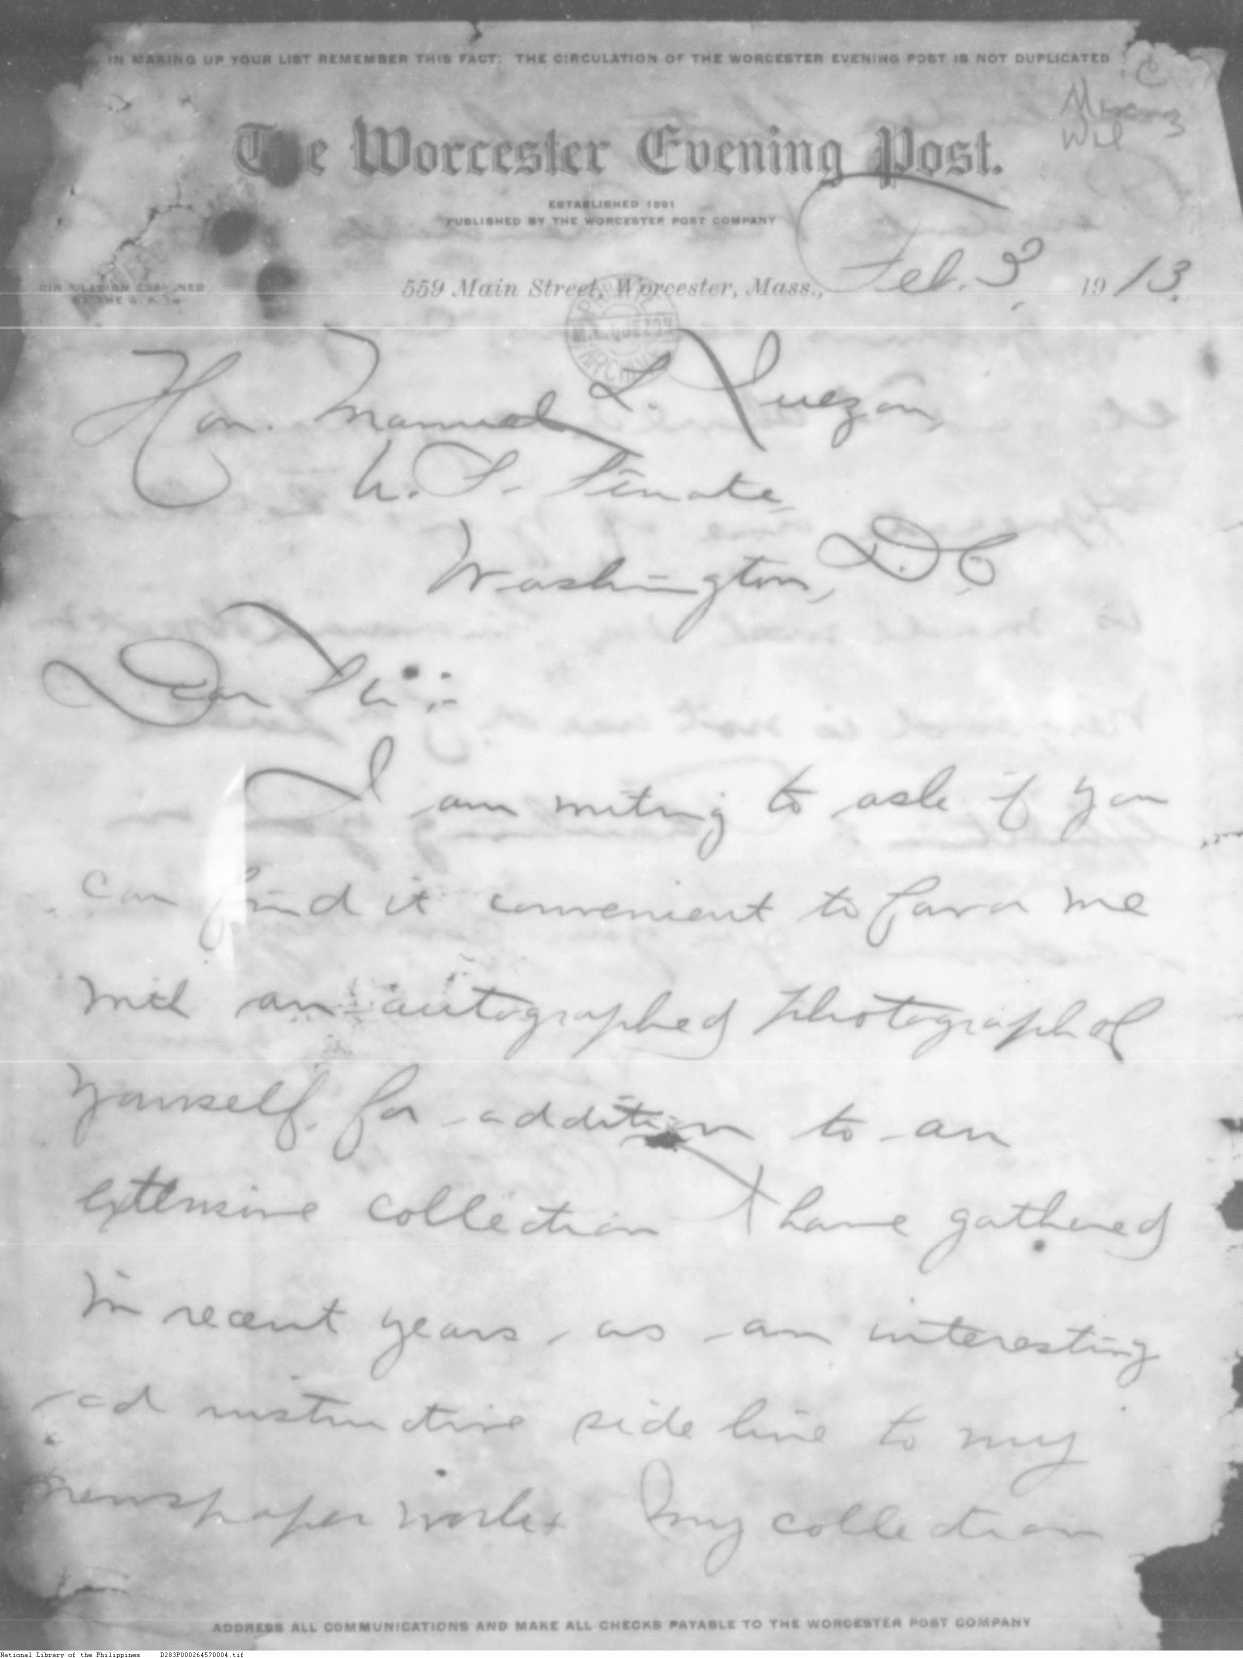 IN MAKING UP YOUR LIST REMEMBER THIS FACT: THE CIRCULATION OF THE WORCESTER EVENING POST IS NOT DUPLICATED
C
The Worcester Evening Post.
ESTABLISHED 1891
PUBLISHED BY THE WORCESTER POST COMPANY
559 Main Street, Worcester, Mass., Feb. 3, 1913.
M.L. QUEZON
Hon. Manuel L. Quezon,
U. S. Senate,
Washington, D.C.
Dear Sir:-
I am writing to ask if you
can find it convenient to favor me
with an autographed photograph of
yourself for addition to an
extensive collection I have gathered
in recent years as an interesting
ad instructive side line to my
newspaper work. My collection
ADDRESS ALL COMMUNICATIONS AND MAKE ALL CHECKS PAYABLE TO THE WORCESTER POST COMPANY
National Library of the Philippines D283P000264570004.tif